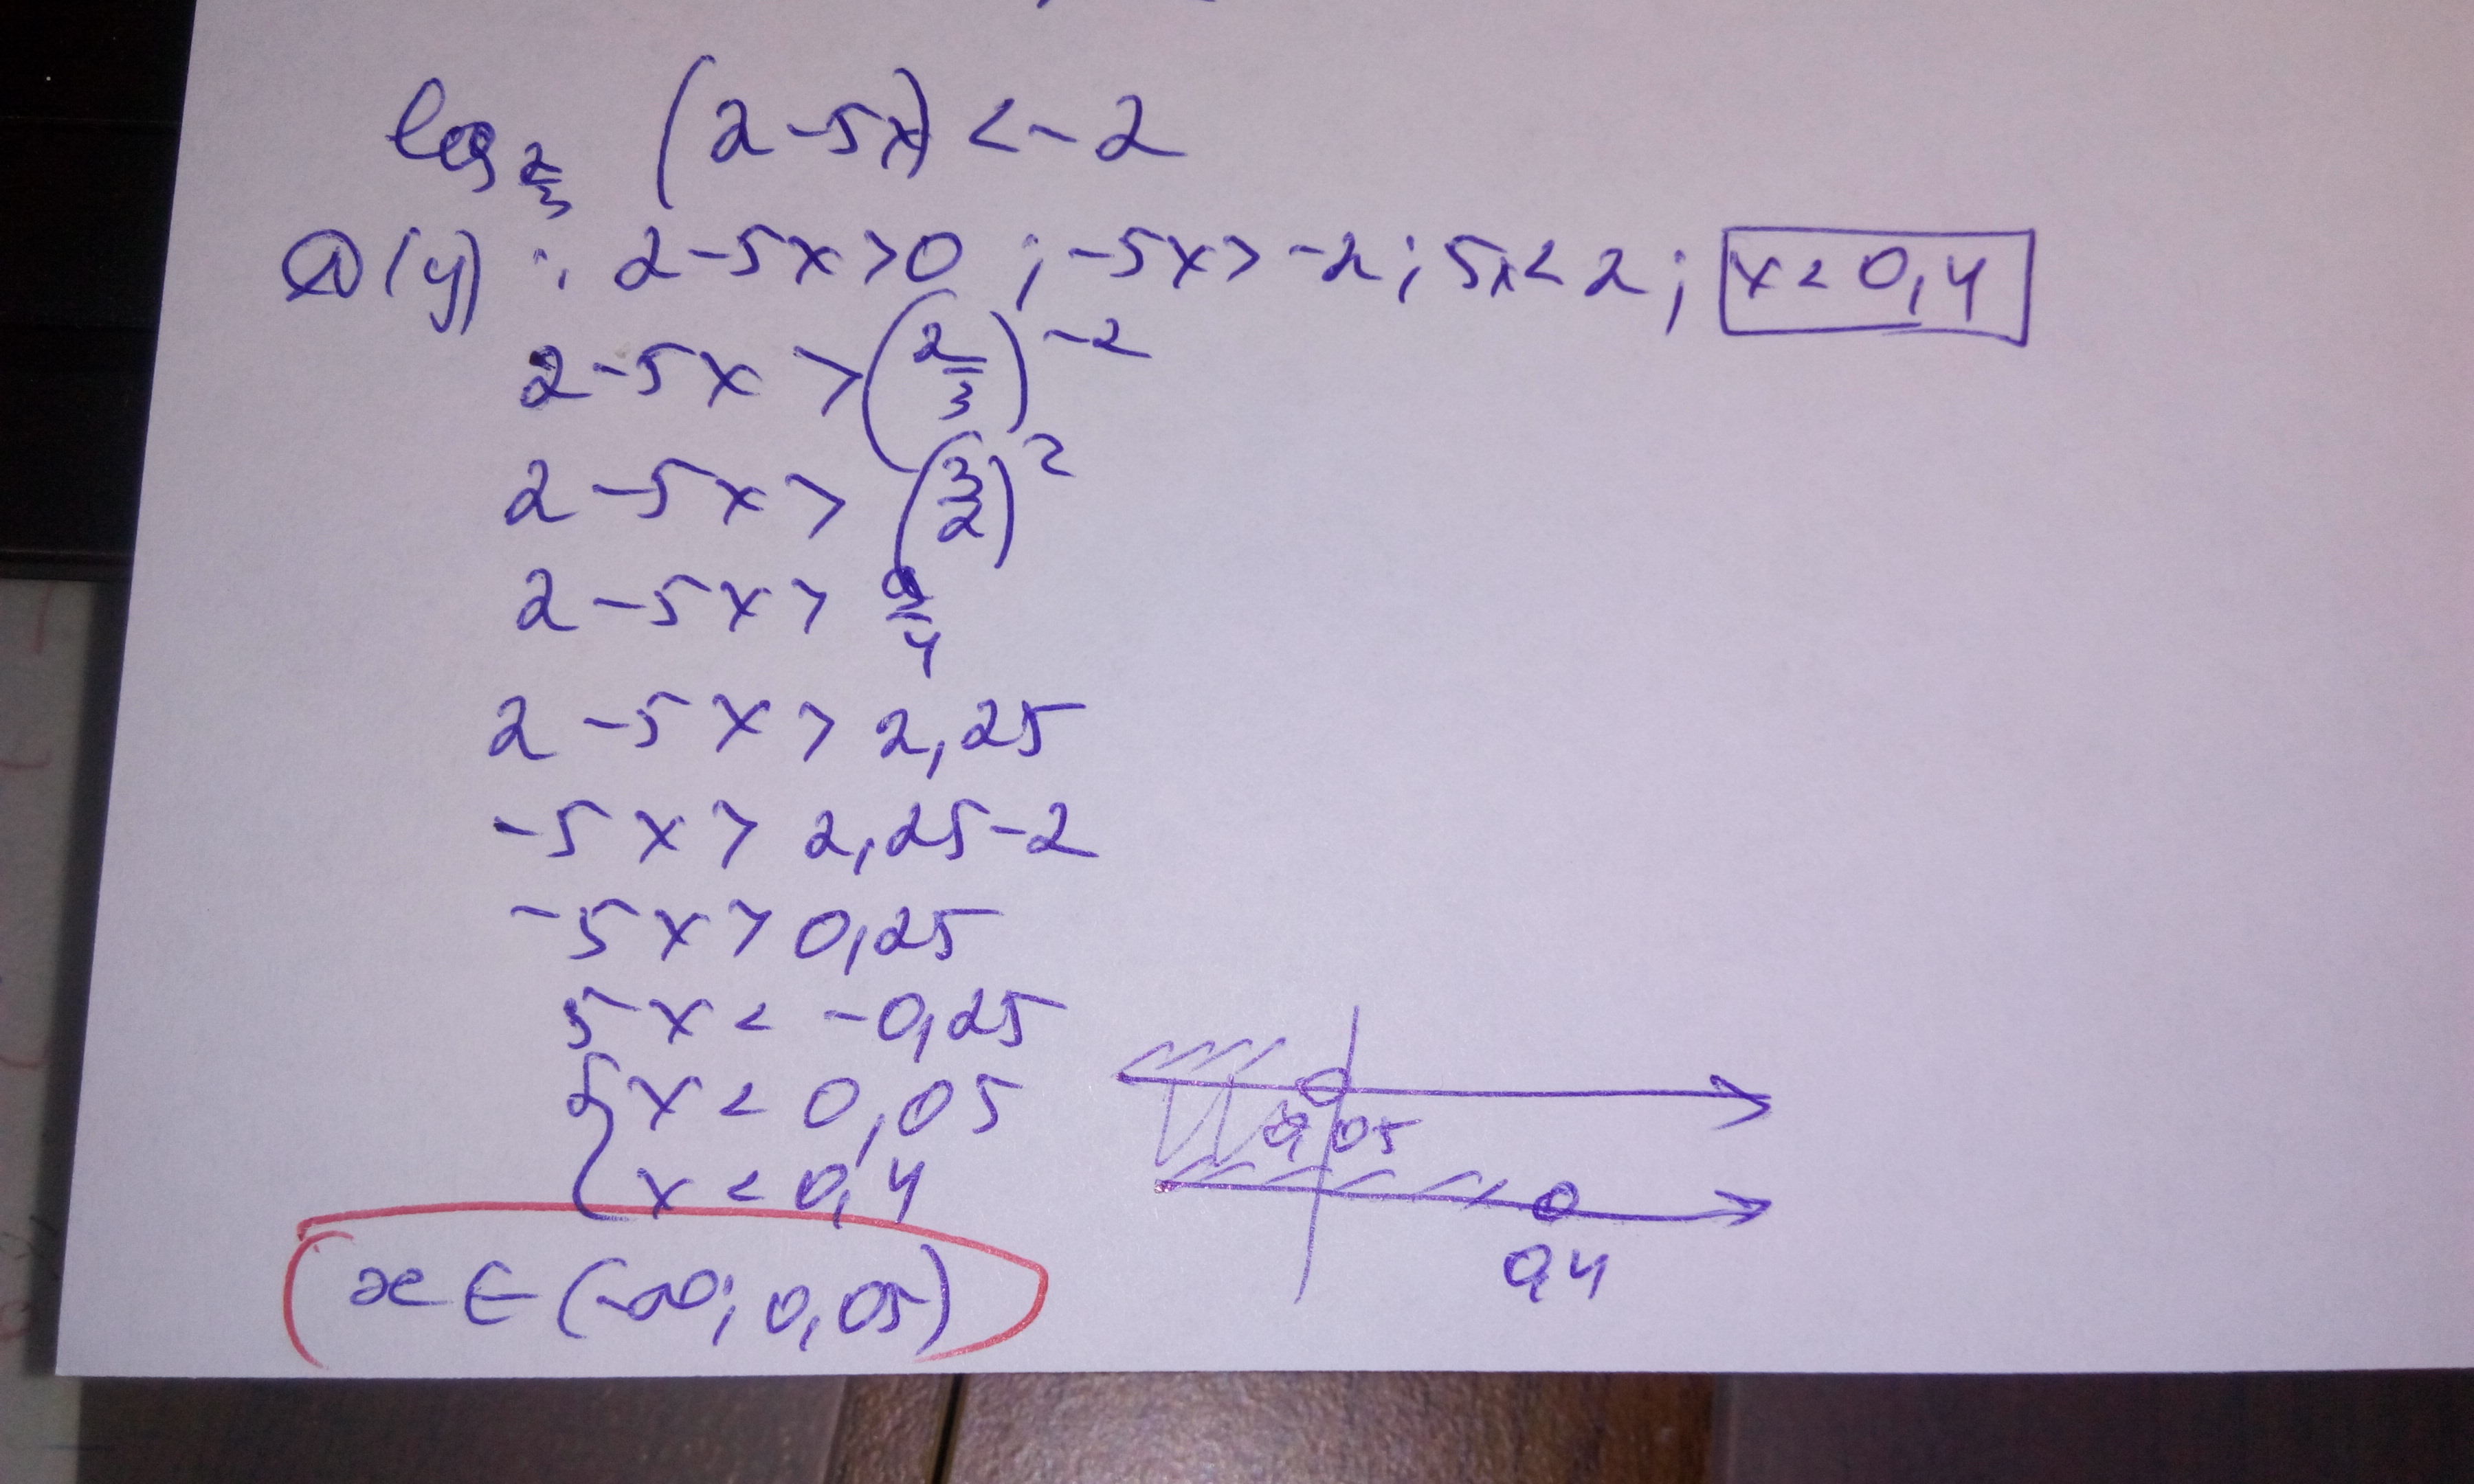 log_{2/3} (2-5x) < -2
D(y): 2-5x>0; -5x>-2; 5x<2; x<0,4
2-5x > (2/3)^{-2}
2-5x > (3/2)^2
2-5x > 9/4
2-5x > 2,25
-5x > 2,25-2
-5x > 0,25
5x < -0,25
{ x < 0,05
x < 0,4
0,05
0,4
x ∈ (-∞; 0,05)